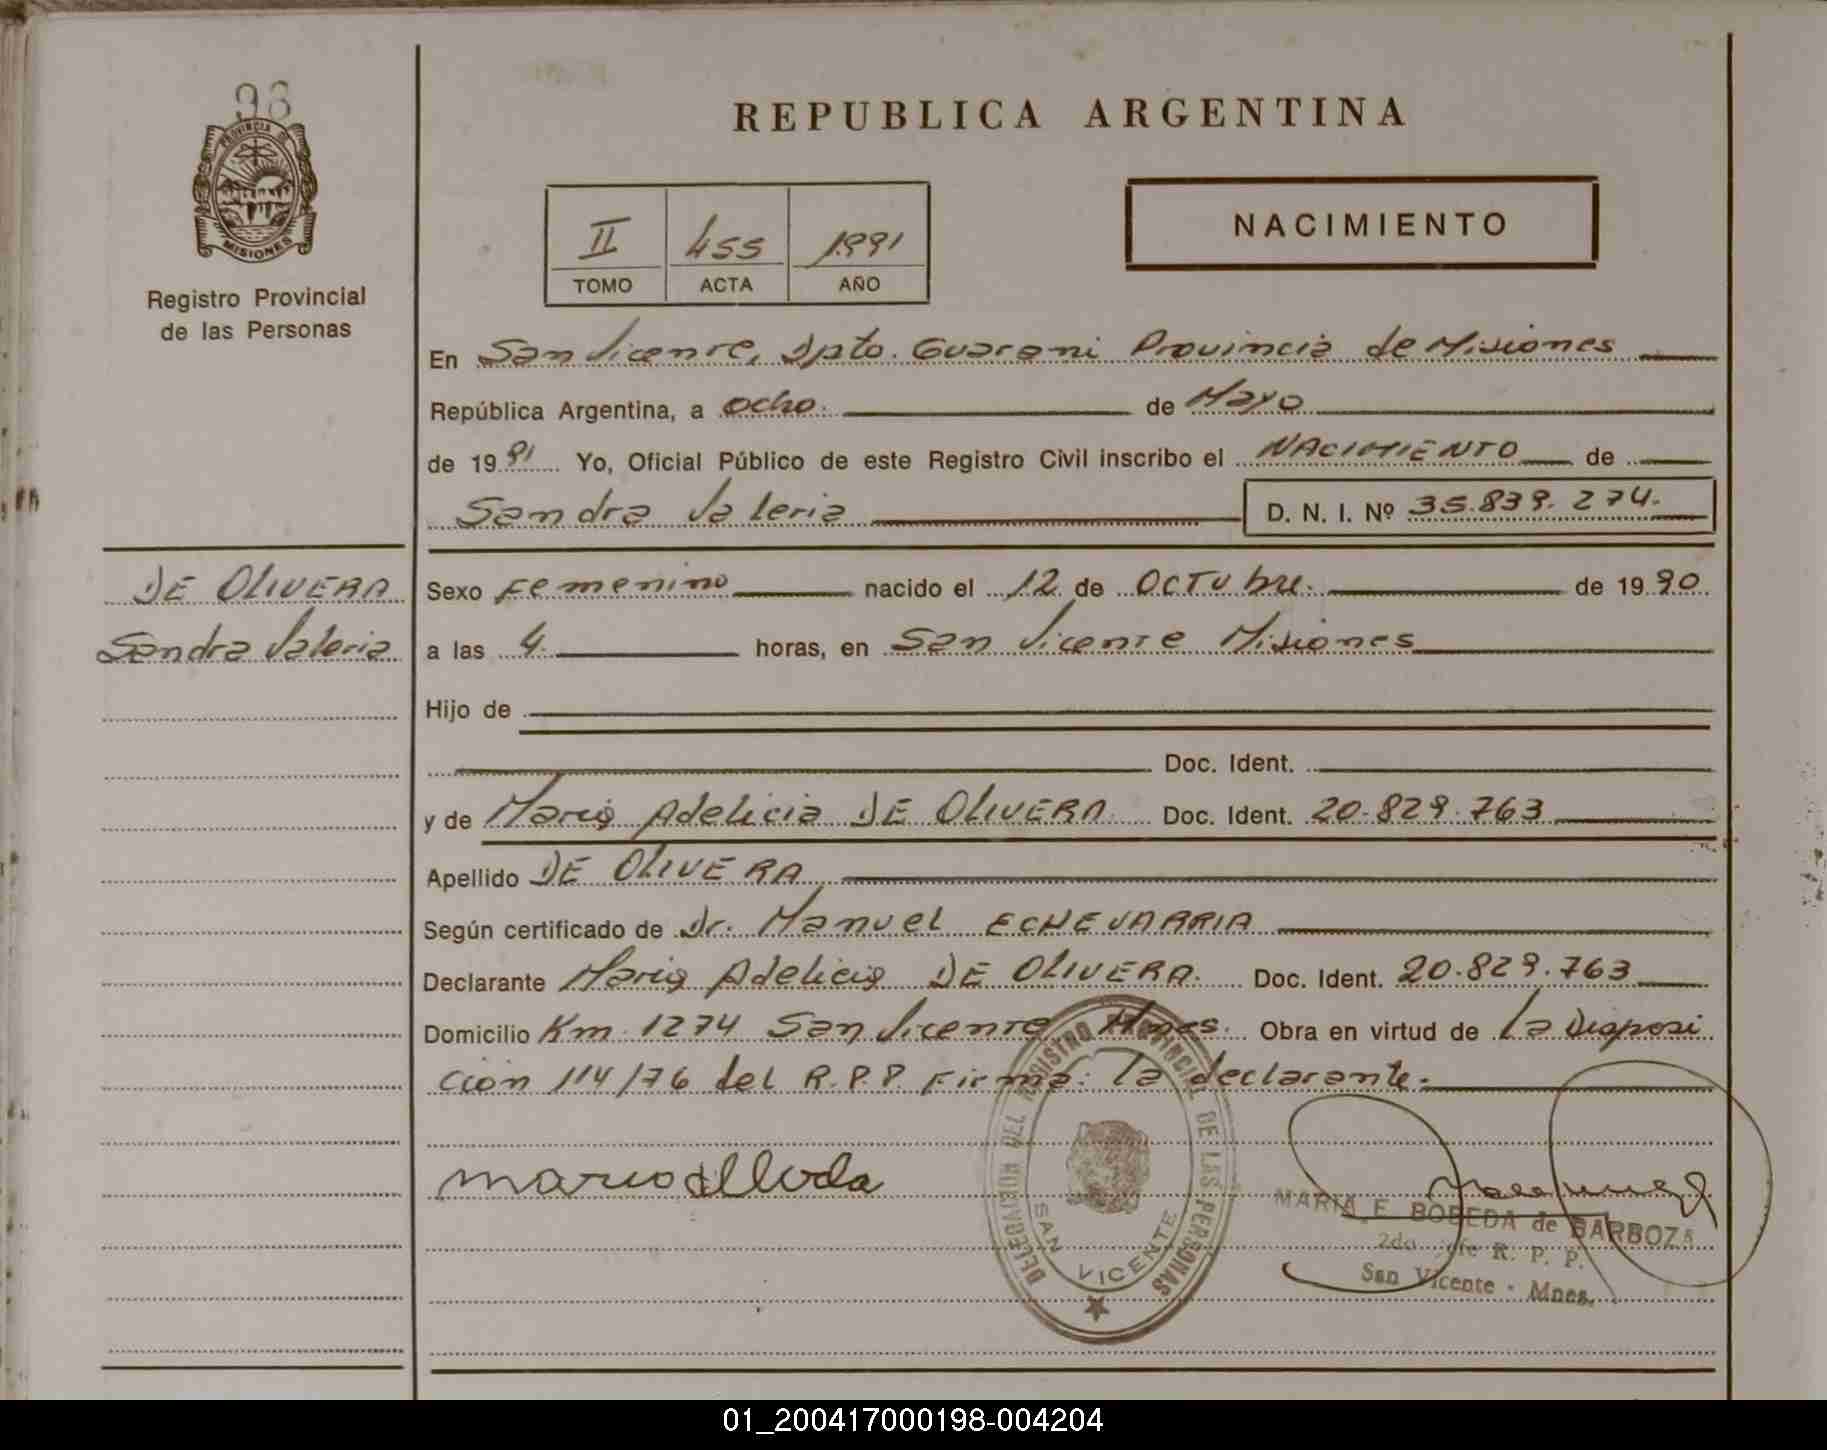 98
PROVINCIA DE
MISIONES
Registro Provincial
de las Personas
REPUBLICA ARGENTINA
II 455 1991
TOMO ACTA AÑO
NACIMIENTO
En San Vicente, Dpto. Guarani Provincia de Misiones
República Argentina, a ocho. de Mayo
de 1991 Yo, Oficial Público de este Registro Civil inscribo el NACIMIENTO de
Sandra Valeria D. N. I. Nº 35.839.274.
DE OLIVERA
Sandra Valeria
Sexo Femenino nacido el 12 de OCTubre. de 1990.
a las 4. horas, en San Vicente Misiones
Hijo de
Doc. Ident.
y de Maria Adelicia DE OLIVERA Doc. Ident. 20.829.763
Apellido DE OLIVERA
Según certificado de Dr. Manuel ECHEVARRIA
Declarante Maria Adelicia DE OLIVERA. Doc. Ident. 20.829.763
Domicilio Km 1274 San Vicente Mnes. Obra en virtud de La Disposi
ción 114/76 del R.P.P. Firma: la declarante.
DELEGACION DEL REGISTRO PROVINCIAL DE LAS PERSONAS
SAN VICENTE
MARIA E. BOBEDA de BARBOZA
2do Jefe R. P. P.
San Vicente - Mnes.
01_200417000198-004204